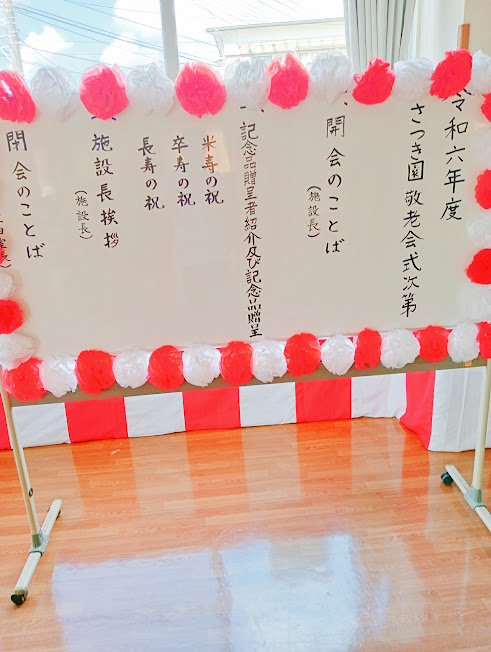 令和六年度
さつき園敬老会式次第
開会のことば
(施設長)
記念品贈呈者紹介及び記念品贈呈
米寿の祝
卒寿の祝
長寿の祝
施設長挨拶
(施設長)
開会のことば
室長)